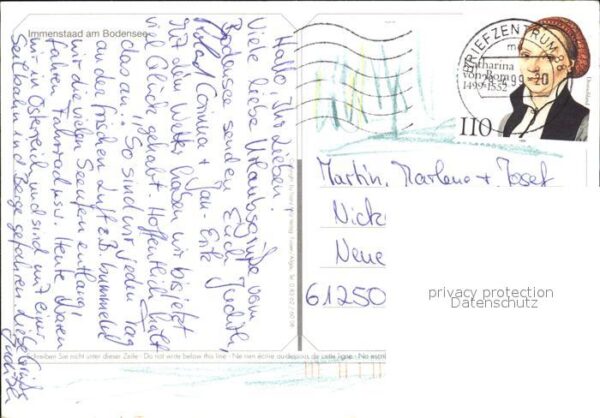 Immenstaad am Bodensee
Hallo! Ihr Lieben!
Viele liebe Urlaubsgrüße vom
Bodensee senden Euch Judith,
Corinna + Jan-Erik
Mit dem Wetter haben wir bis jetzt
viel Glück gehabt. Hoffentlich hält
das an!! So sind wir jeden Tag
an der frischen Luft z.B. bummeln
wir die vielen Seeufer entlang,
fahren Fahrrad usw. Heute waren
wir in Österreich und sind mit einer
Seilbahn und Berge gefahren. Liebe Grüße
Judith
BRIEFZENTRUM 88
Katharina
von Bora
1499-1552
110
Martin, Marlene + Josef
Nick
Neue
61250
privacy protection
Datenschutz
Schreiben Sie nicht unter dieser Zeile · Do not write below this line · Ne rien écrire au-dessous de cette ligne · No escri